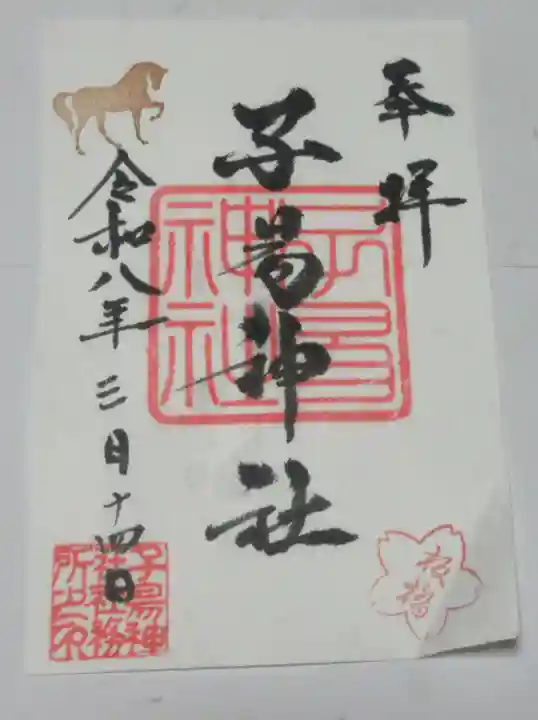 奉拝
子易神社
子易
神社
令和八年三月十四日
子易神
社社務
所之印